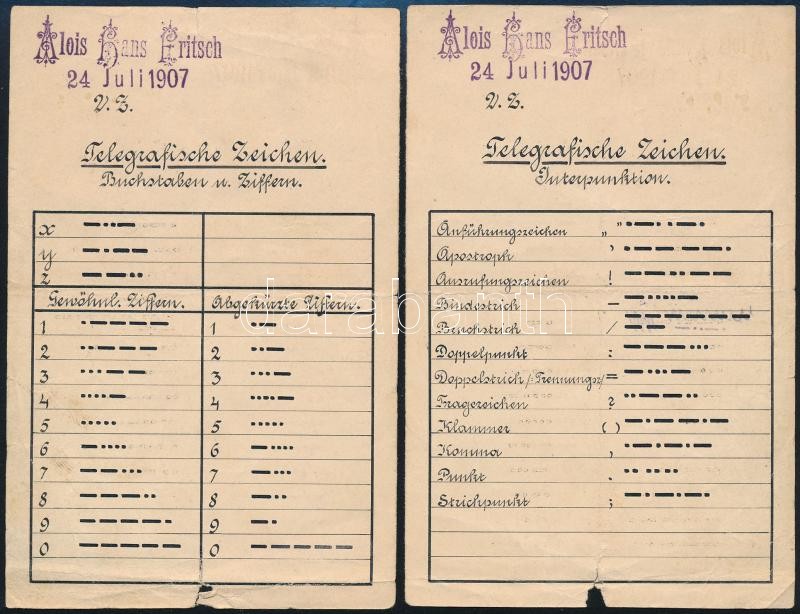 Alois Hans Fritsch
24 Juli 1907
V. Z.
Telegrafische Zeichen.
Buchstaben u. Ziffern.
x
y
z
Gewöhnl. Ziffern. Abgekürzte Ziffern.
1 1
2 2
3 3
4 4
5 5
6 6
7 7
8 8
9 9
0 0
Alois Hans Fritsch
24 Juli 1907
V. Z.
Telegrafische Zeichen.
Interpunktion.
Anführungszeichen „ "
Apostroph '
Ausrufungszeichen !
Bindestrich —
Bruchstrich /
Doppelpunkt :
Doppelstrich /:Trennungsz/ =
Fragezeichen ?
Klammer ( )
Komma ,
Punkt .
Strichpunkt ;
darabanth